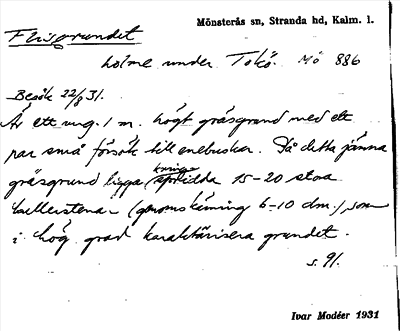 Mönsterås sn, Stranda hd, Kalm. l.
Flisgrundet
holme under Tokö. Mö 886
Besök 22/8 31.
Är ett ung. 1 m. högt gräsgrund med ett
par små försök till enebuskar. På detta jämna
gräsgrund ligga kringspridda 15-20 stora
bullerstenar (genomskärning 6-10 dm.), som
i hög grad karaktärisera grundet.
s. 91.
Ivar Modéer 1931